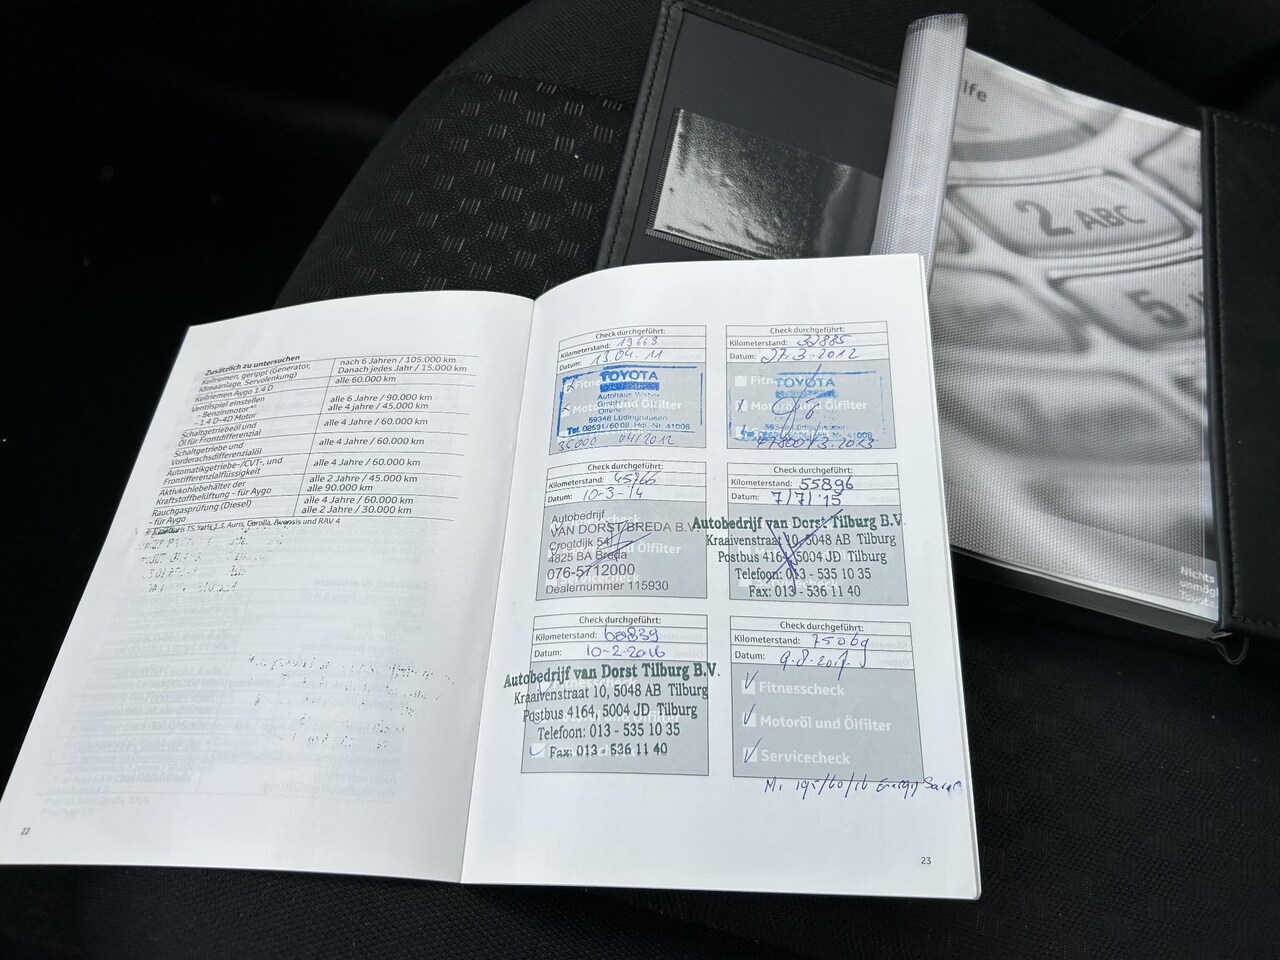 life
2 ABC
5
Nichts
Toyota
Zusätzlich zu untersuchen
Keilriemen, gerippt (Generator,
Klimaanlage, Servolenkung)
nach 6 Jahren / 105.000 km
Danach jedes Jahr / 15.000 km
Keilriemen Aygo 1.4 D
alle 60.000 km
Ventilspiel einstellen
- Benzinmotor*¹
- 1.4 D-4D Motor
alle 6 Jahre / 90.000 km
alle 4 Jahre / 45.000 km
Schaltgetriebeöl und
Öl für Frontdifferenzial
alle 4 Jahre / 60.000 km
Schaltgetriebe und
Vorderachsdifferenzialöl
alle 4 Jahre / 60.000 km
Automatikgetriebe-/CVT-, und
Frontifferenzialflüssigkeit
alle 4 Jahre / 60.000 km
Aktivkohlebehälter der
Kraftstoffbelüftung - für Aygo
alle 2 Jahre / 45.000 km
alle 90.000 km
Rauchgasprüfung (Diesel)
- für Aygo
alle 4 Jahre / 60.000 km
alle 2 Jahre / 30.000 km
Yaris 1.3, Auris, Corolla, Avensis und RAV 4
22
Check durchgeführt:
Kilometerstand: 19663
Datum: 13.04.11
TOYOTA
Autohaus Weber
GmbH
Olfener
59348 Lüdinghausen
Tel. 02591/6008, Hdl. Nr. 41008
35000 04/2012
Check durchgeführt:
Kilometerstand: 32885
Datum: 27.3.2012
TOYOTA
Motoröl und Ölfilter
Check durchgeführt:
Kilometerstand:
Datum: 10-3-14
Autobedrijf
VAN DORST/BREDA B.V.
Crogtdijk 54
4825 BA Breda
076-5712000
Dealernummer 115930
Check durchgeführt:
Kilometerstand: 55896
Datum: 7/7/'15
Autobedrijf van Dorst Tilburg B.V.
Kraaivenstraat 10, 5048 AB Tilburg
Postbus 4164, 5004 JD Tilburg
Telefoon: 013 - 535 10 35
Fax: 013 - 536 11 40
Check durchgeführt:
Kilometerstand: 60839
Datum: 10-2-2016
Autobedrijf van Dorst Tilburg B.V.
Kraaivenstraat 10, 5048 AB Tilburg
Postbus 4164, 5004 JD Tilburg
Telefoon: 013 - 535 10 35
Fax: 013 - 536 11 40
Check durchgeführt:
Kilometerstand: 75069
Datum: 9-8-2017
Fitnesscheck
Motoröl und Ölfilter
Servicecheck
Mi 195/60/16 Energy Saver
23